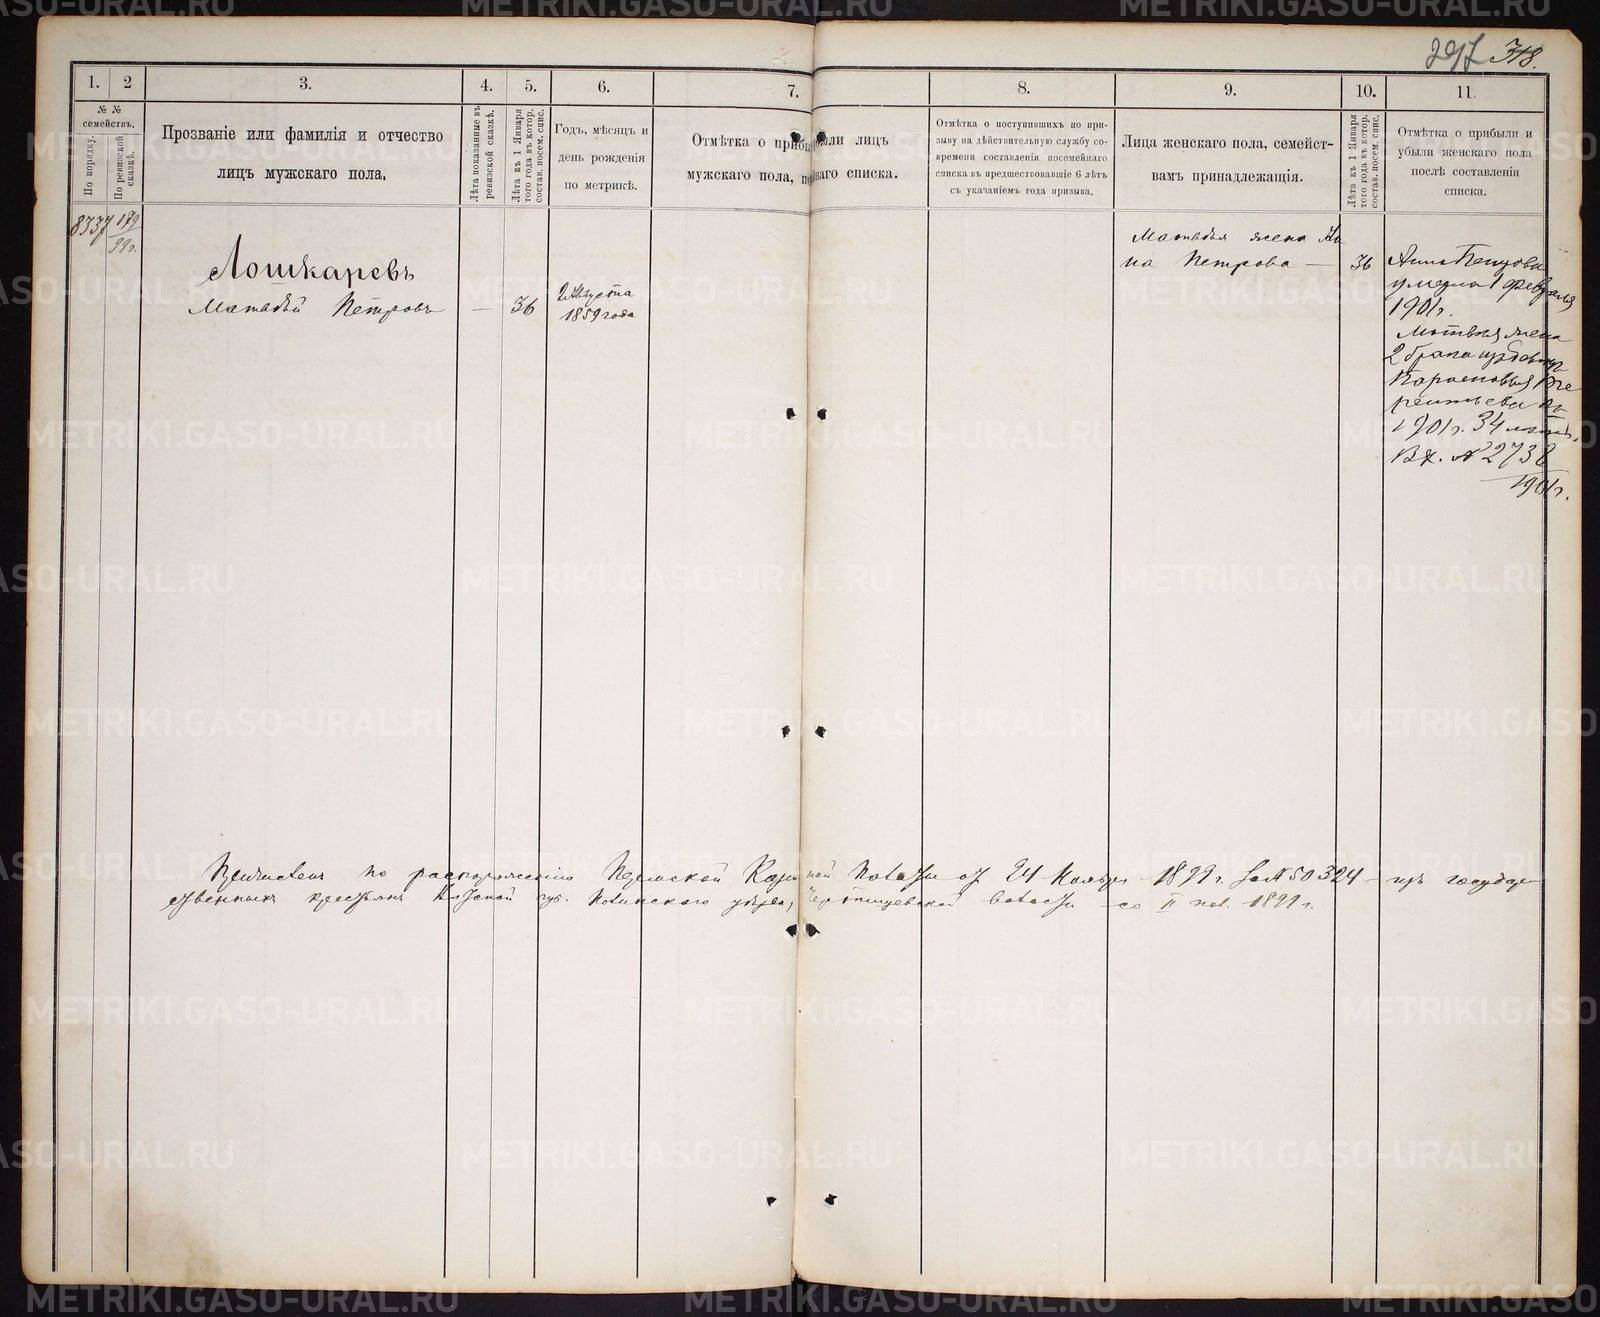 297 318.
1. 2 3. 4. 5. 6. 7. 8. 9. 10. 11.
№ № семействъ.
По порядку.
По ревизской сказкѣ.
Прозваніе или фамилія и отчество
лицъ мужскаго пола.
Лѣта показанные въ
ревизской сказкѣ.
Лѣта къ 1 Января
того года въ котор.
состав. посем. спис.
Годъ, мѣсяцъ и
день рожденія
по метрикѣ.
Отмѣтка о прибыли лицъ
мужскаго пола, списка.
Отмѣтка о поступившихъ по при-
зыву на дѣйствительную службу со-
времени составленія посемейнаго
списка въ предшествовавшіе 6 лѣтъ
съ указаніемъ года призыва.
Лица женскаго пола, семейст-
вамъ принадлежащія.
Лѣта къ 1 Января
того года въ котор.
состав. посем. спис.
Отмѣтка о прибыли и
убыли женскаго пола
послѣ составленія
списка.
8337 179
99 г.
Лошкаревъ
Матвѣй Петровъ — 36
2 Августа
1859 года
Матвѣя жена Ан
на Петрова — 36
Анна Петрова
умерла 1 февраля
1901 г.
Матвѣя жена
2 брака
1901 г. 34 лѣтъ.
Вх. № 2738
1901 г.
Причисленъ по распоряженію Пермской Казенной Палаты от 24 Ноября 1899 г. за № 50324 — изъ государ
ственныхъ крестьянъ Вятской губ. уѣзда, волости — со II пол. 1899 г.
METRIKI.GASO-URAL.RU